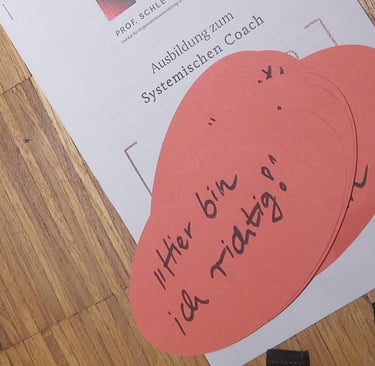 PROF. SCHLE
Institut für Organisationsentwicklung
Ausbildung zum
Systemischen Coach
"Hier bin
ich richtig!"